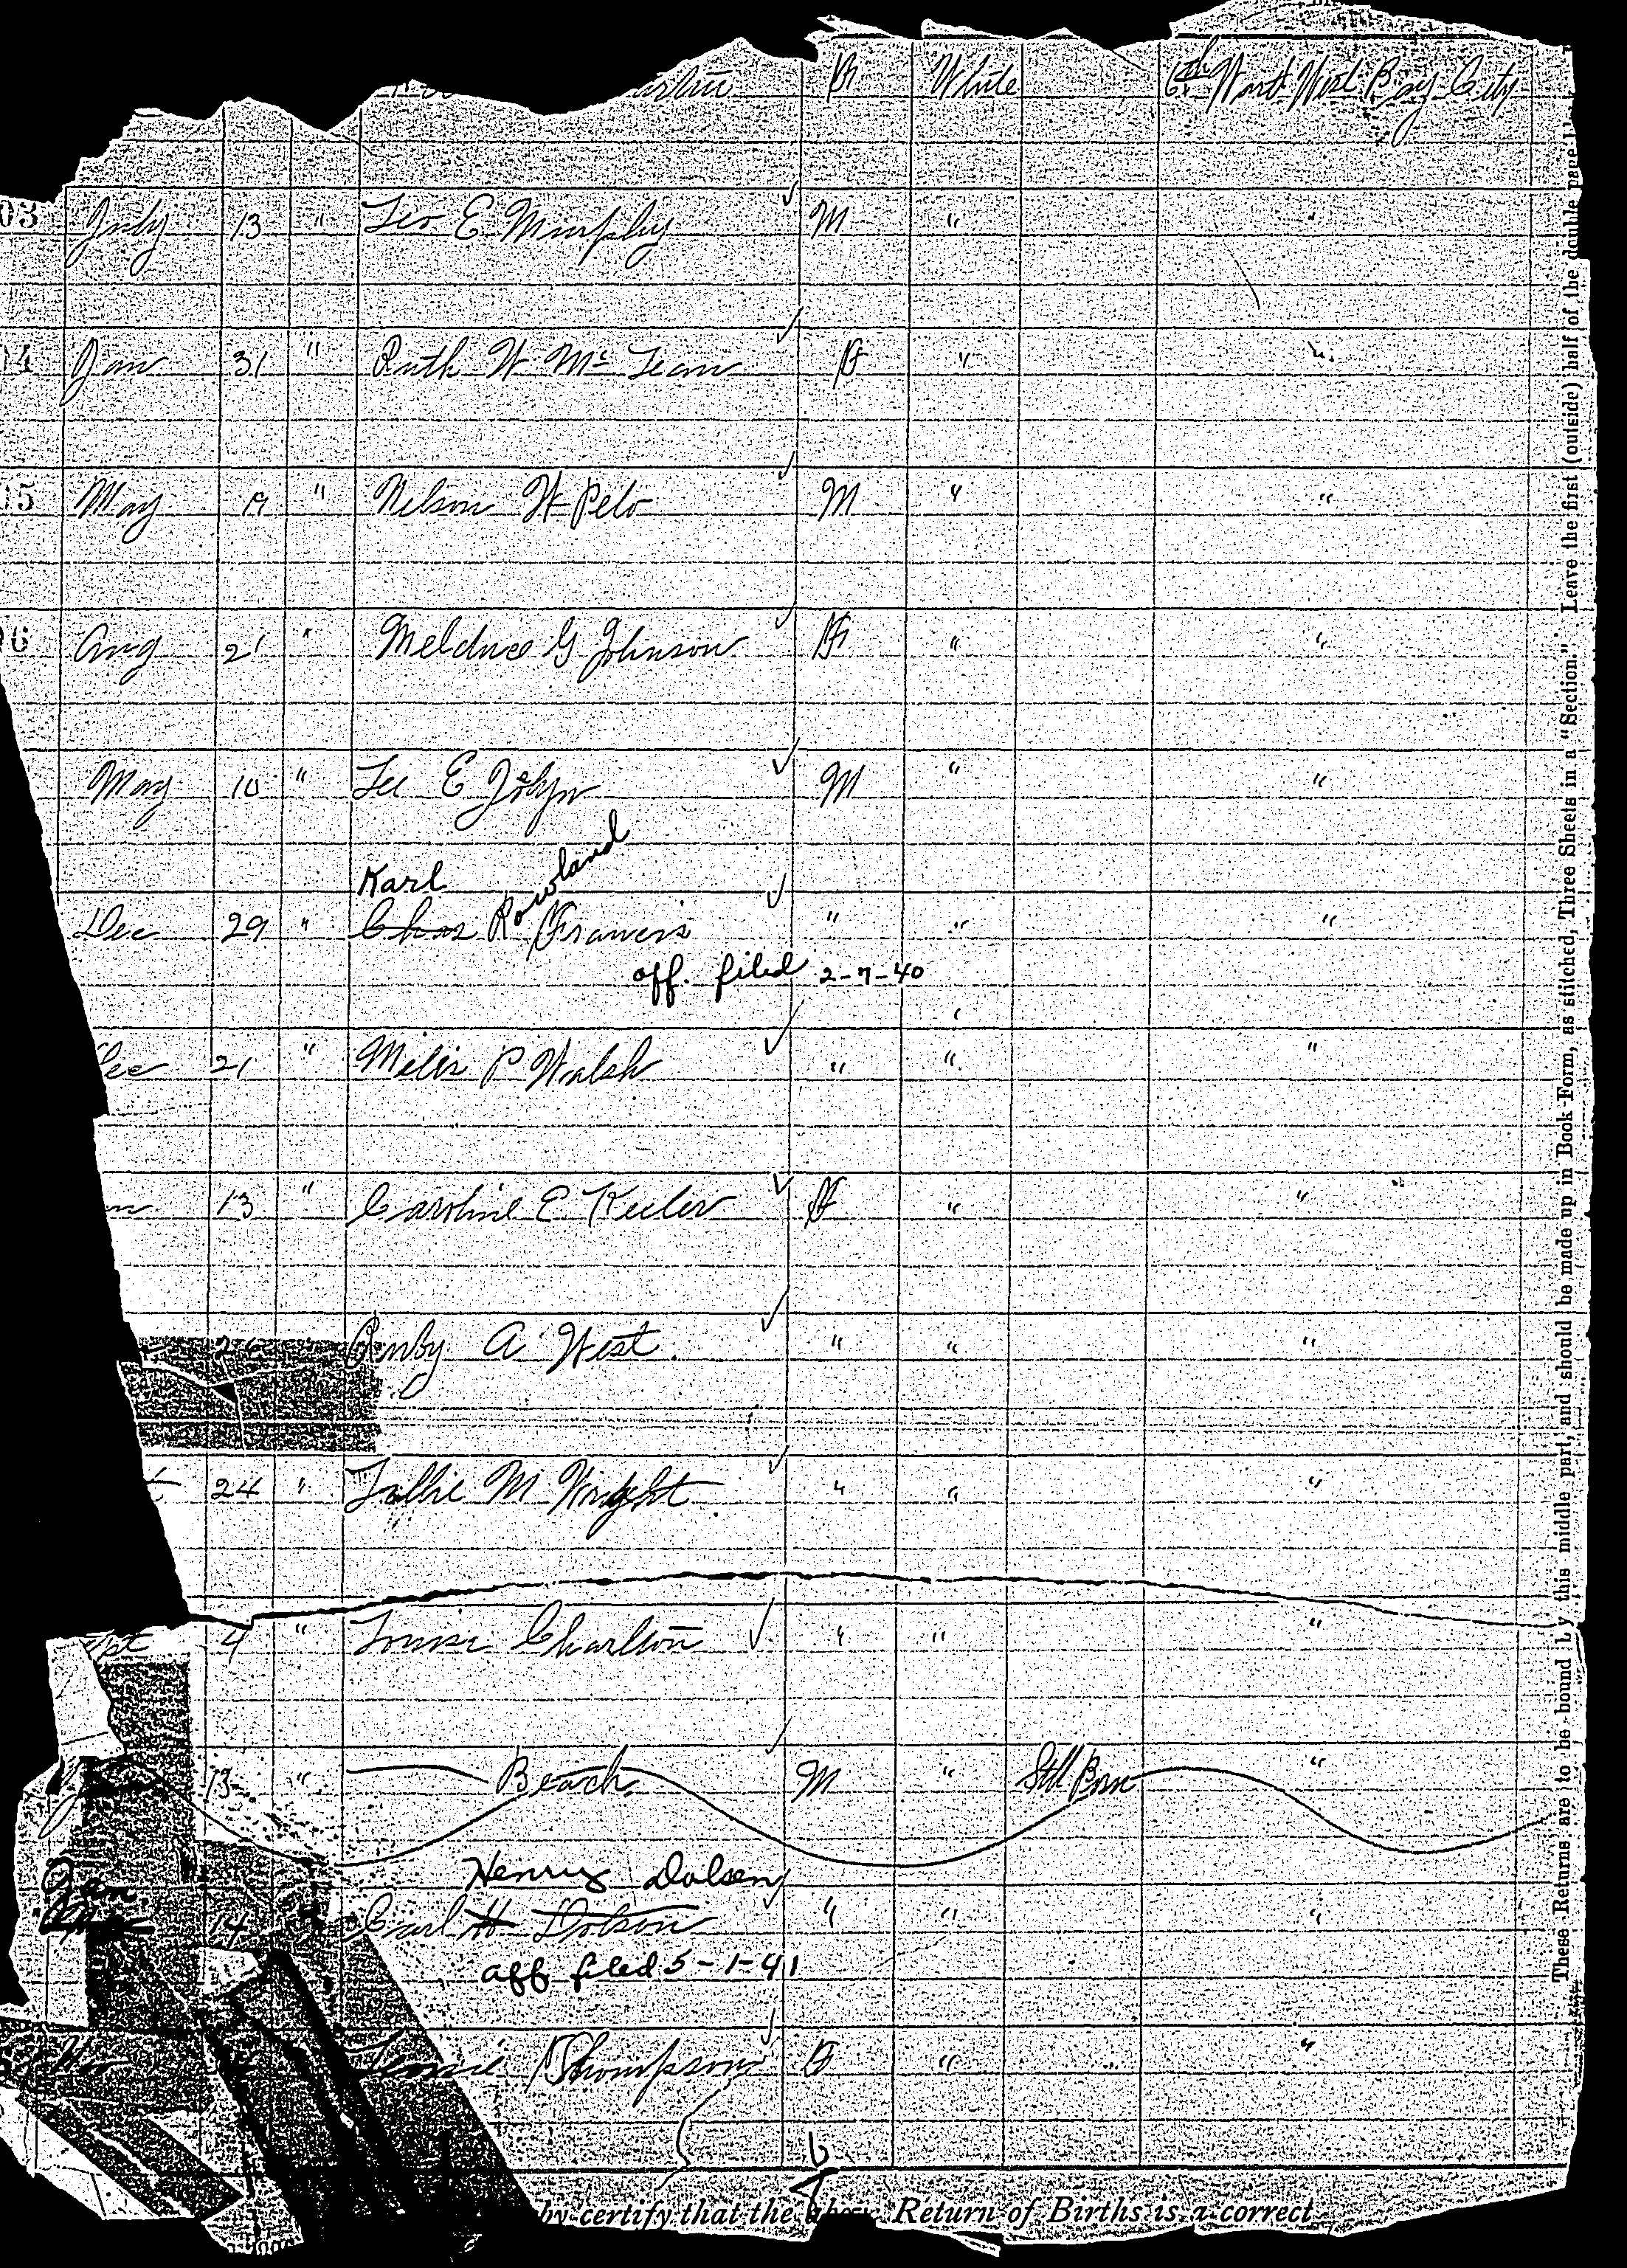 F White 6th Ward West Bay City
03 July 13 " Leo E Murphy M " "
04 Jan 31 " Ruth W McLean F " "
05 May 19 " Nelson W Pelo M " "
06 Aug 21 " G Johnson F " "
May 10 " Lee E M " "
Karl Rowland
Dec 29 " Chas R Francis " " "
aff. filed 2-7-40
Dec 21 " P Walsh " " "
13 " Caroline E Keeler F " "
Ruby A West. " " "
24 " M Wright " " "
4 " Louise Charlton " " "
13 " Beach. M " Still Born "
Henry Dolsen
Jan
14 Carl H Dolson " " "
aff filed 5-1-41
Thompson F " "
by certify that the above Return of Births is a correct
These Returns are to be bound by this middle part, and should be made up in Book Form, as stitched, Three Sheets in a "Section." Leave the first (outside) half of the double page